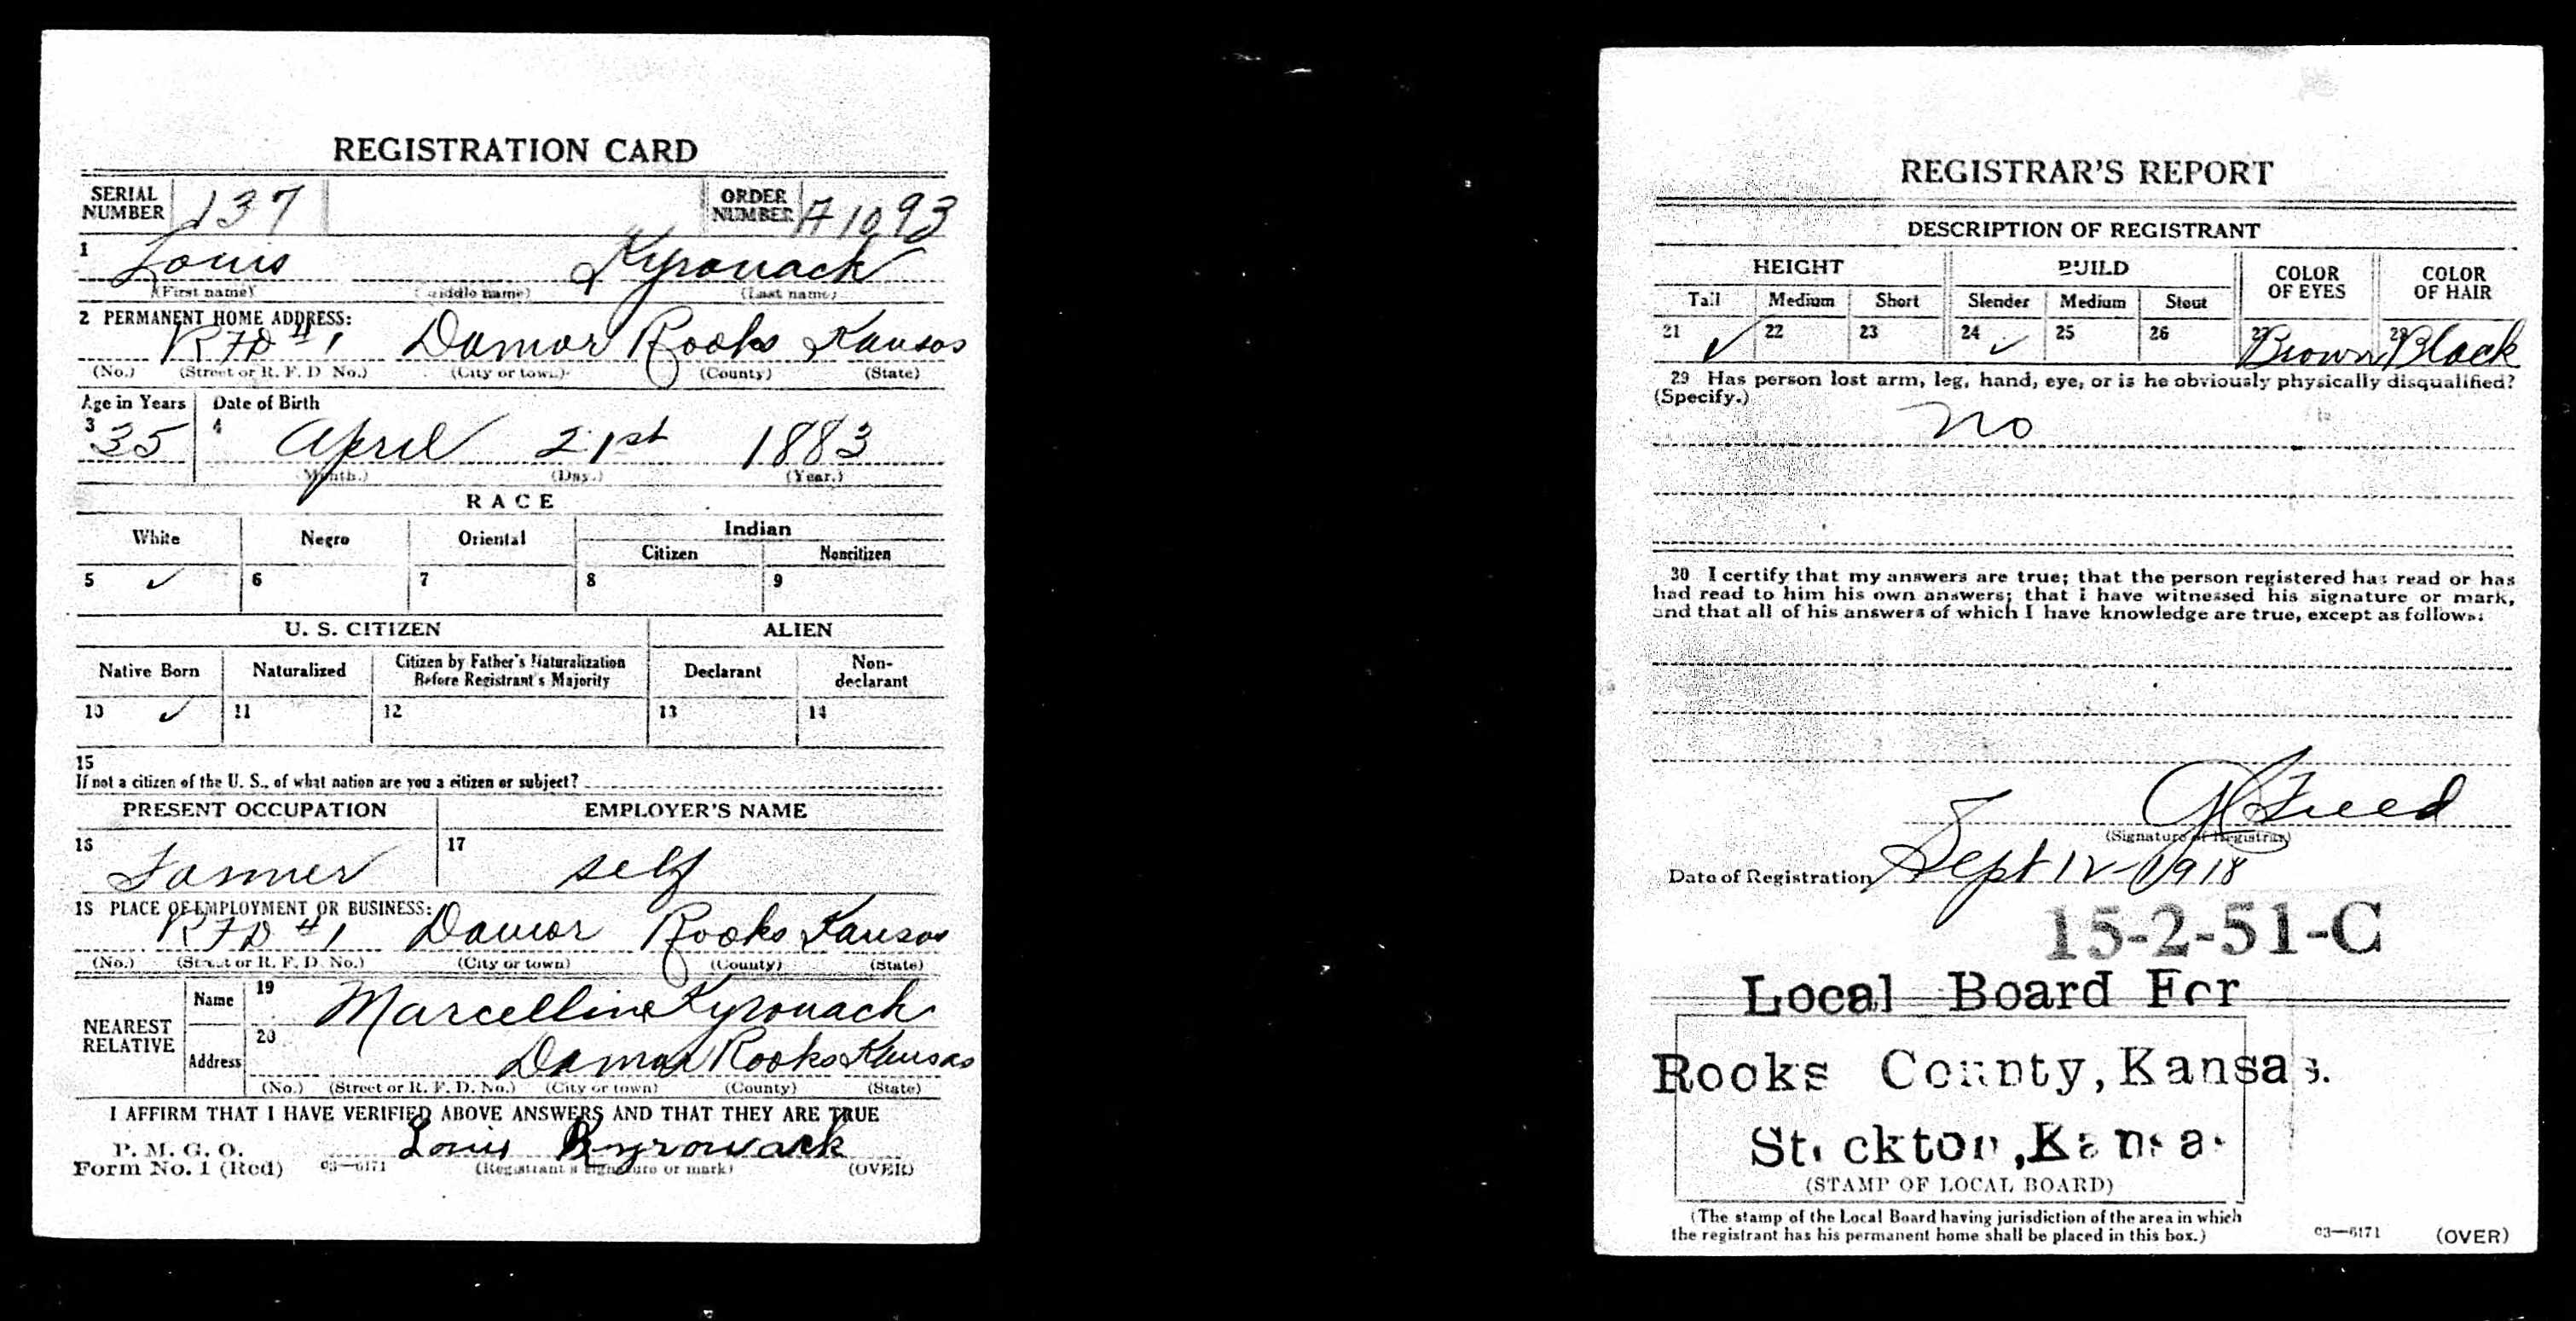 REGISTRATION CARD
SERIAL NUMBER 137 ORDER NUMBER A1093
1 Louis Kyrouack
(First name) (Middle name) (Last name)
2 PERMANENT HOME ADDRESS:
RFD #1 Damar Rooks Kansas
(No.) (Street or R. F. D. No.) (City or town) (County) (State)
Age in Years Date of Birth
3 35 4 April 21st 1883
(Month.) (Day.) (Year.)
RACE
White Negro Oriental Indian
Citizen Noncitizen
5 ✓ 6 7 8 9
U. S. CITIZEN ALIEN
Native Born Naturalized Citizen by Father's Naturalization Before Registrant's Majority Declarant Non-declarant
10 ✓ 11 12 13 14
15
If not a citizen of the U. S., of what nation are you a citizen or subject?
PRESENT OCCUPATION EMPLOYER'S NAME
16 Farmer 17 self
18 PLACE OF EMPLOYMENT OR BUSINESS:
RFD #1 Damar Rooks Kansas
(No.) (Street or R. F. D. No.) (City or town) (County) (State)
NEAREST RELATIVE Name 19 Marcelline Kyrouack
Address 20 Damar Rooks Kansas
(No.) (Street or R. F. D. No.) (City or town) (County) (State)
I AFFIRM THAT I HAVE VERIFIED ABOVE ANSWERS AND THAT THEY ARE TRUE
P. M. G. O.
Form No. 1 (Red) 03—6171 Louis Kyrowack
(Registrant's signature or mark) (OVER)
REGISTRAR'S REPORT
DESCRIPTION OF REGISTRANT
HEIGHT BUILD COLOR OF EYES COLOR OF HAIR
Tall Medium Short Slender Medium Stout
21 ✓ 22 23 24 ✓ 25 26 27 Brown 28 Black
29 Has person lost arm, leg, hand, eye, or is he obviously physically disqualified?
(Specify.)
no
30 I certify that my answers are true; that the person registered has read or has
had read to him his own answers; that I have witnessed his signature or mark,
and that all of his answers of which I have knowledge are true, except as follows:
Freed
(Signature of Registrar)
Date of Registration Sept 12 - 1918
15-2-51-C
Local Board For
Rooks County, Kansas.
Stockton, Kansas
(STAMP OF LOCAL BOARD)
(The stamp of the Local Board having jurisdiction of the area in which
the registrant has his permanent home shall be placed in this box.)
03—6171 (OVER)